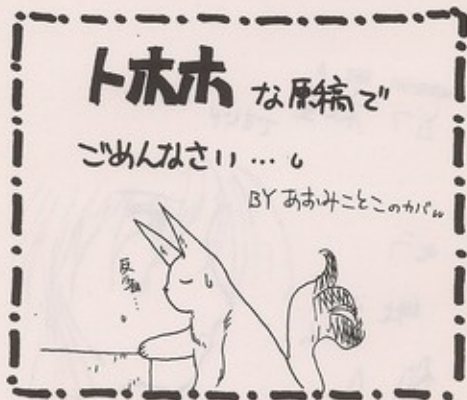 トホホな原稿で
ごめんなさい…
BY あおみことこのカバ
反省…